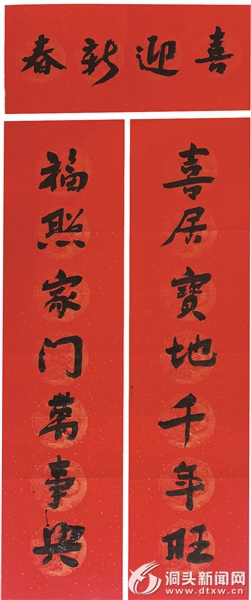 喜迎新春
喜居寳地千年旺
福照家门萬事興
洞头新闻网
www.dtxw.cn